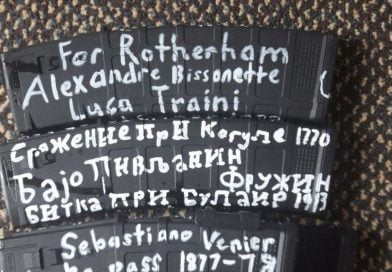 For Rotherham
Alexandre Bissonette
Luca Traini
Сражение при Кагуле 1770
Бајо Пивљанин
Фружин
битка при Булаир 1913
Sebastiano Venier
pass 1877-78